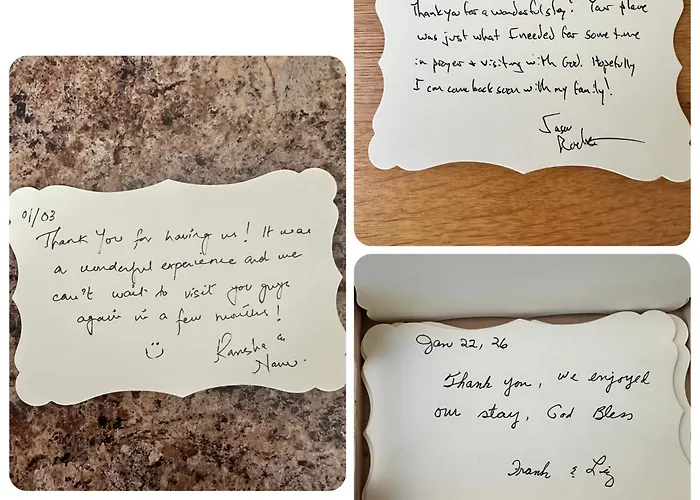 01/03
Thank You for having us! It was
a wonderful experience and we
can't wait to visit you guys
again in a few months!
Thank you for a wonderful stay! Your place
was just what I needed for some time
in prayer + visiting with God. Hopefully
I can come back soon with my family!
Jason
Jan 22, 26
Thank you, we enjoyed
our stay, God Bless
Frank & Liz